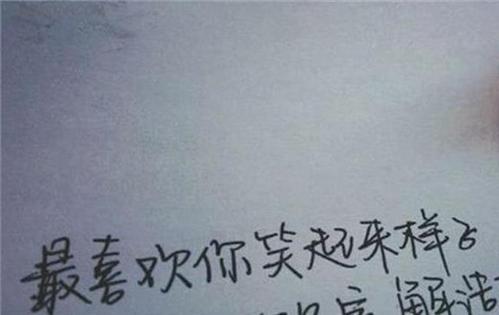 最喜欢你笑起来样子
解浩